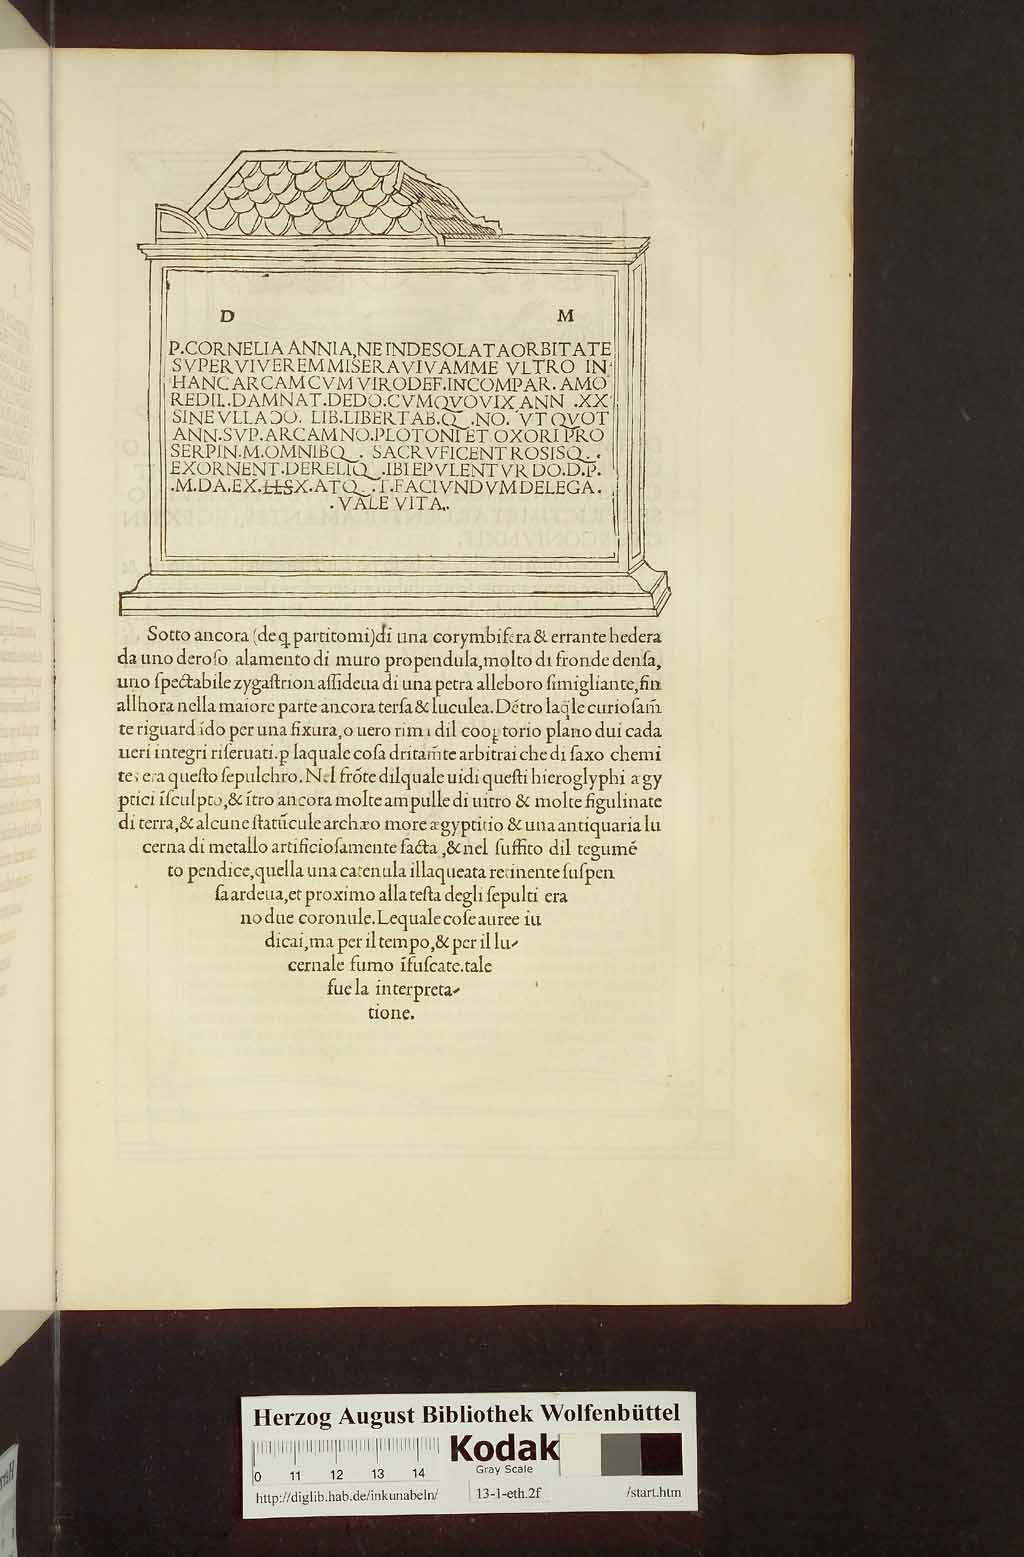 D M
P.CORNELIA ANNIA, NE IN DESOLATA ORBITATE
SVPERVIVEREM MISERA VIVAM ME VLTRO IN
HANC ARCAM CVM VIRO DEF. INCOMPAR. AMO
RE DIL. DAMNAT. DEDO. CVM QVO VIX ANN .XX
SINE VLLA ƆO. LIB. LIBERTAB.Q .NO. VT QVOT
ANN. SVP. ARCAM NO. PLOTONI ET OXORI PRO
SERPIN. M. OMNIBQ . SACRVFICENT ROSISQ. .
EXORNENT. DE RELIQ .IBI EPVLENTVR DO. D. P.
.M. DA. EX. LLSX. ATQ . T. FACIVNDVM DELEGA.
. VALE VITA.
Sotto ancora (de q̃ partitomi) di una corymbifera & errante hedera
da uno deroſo alamento di muro propendula, molto di fronde denſa,
uno ſpectabile zygaſtrion aſſideua di una petra alleboro ſimigliante, fin
allhora nella maiore parte ancora terſa & luculea. Dẽtro laq̃le curioſam̃
te riguardãdo per una fixura, o uero rima dil cooꝑtorio plano dui cada
ueri integri riſeruati. ꝑ laquale coſa dritam̃te arbitrai che di ſaxo chemi
tes era queſto ſepulchro. Nel frõte dilquale uidi queſti hieroglyphi ægy
ptici ĩſculpto, & ĩtro ancora molte ampulle di uitro & molte figulinate
di terra, & alcune ſtatũcule archæo more ægyptitio & una antiquaria lu
cerna di metallo artificioſamente facta, & nel ſuffito dil tegumẽ
to pendice, quella una catenula illaqueata retinente ſuſpen
ſa ardeua, et proximo alla teſta degli ſepulti era
no due coronule. Lequale coſe auree iu
dicai, ma per il tempo, & per il lu-
cernale fumo ĩfuſcate. tale
fue la interpreta-
tione.
Herzog August Bibliothek Wolfenbüttel
Kodak
Gray Scale
0 11 12 13 14
http://diglib.hab.de/inkunabeln/ 13-1-eth.2f /start.htm